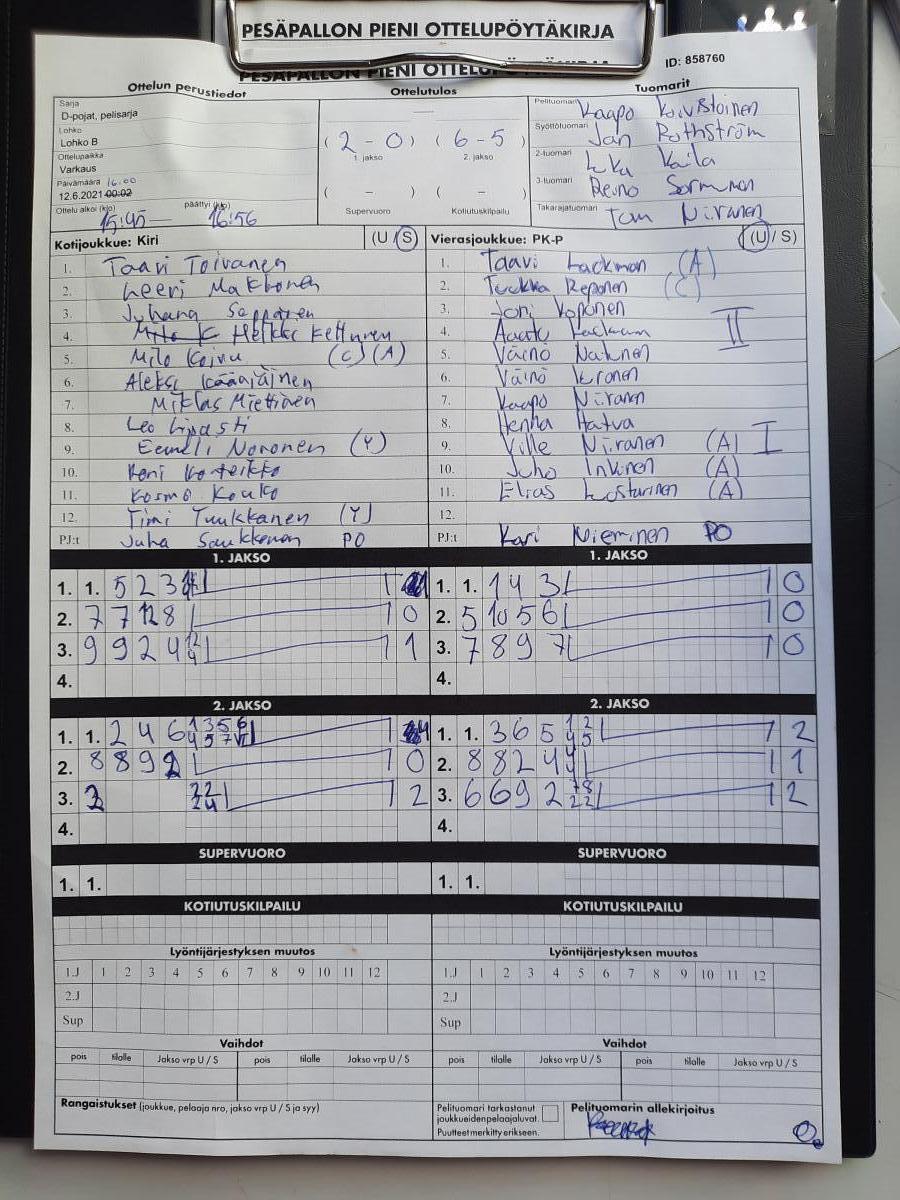 PESÄPALLON PIENI OTTELUPÖYTÄKIRJA
PESÄPALLON PIENI OTTELUPÖYTÄKIRJA
ID: 858760
Ottelun perustiedot
Sarja
D-pojat, pelisarja
Lohko
Lohko B
Ottelupaikka
Varkaus
Päivämäärä 16:00
12.6.2021 00:02
Ottelu alkoi (klo) päättyi (klo)
15:45 — 16:56
Ottelutulos
( 2 - 0 ) ( 6 - 5 )
1. jakso 2. jakso
( - ) ( - )
Supervuoro Kotiutuskilpailu
Tuomarit
Pelituomari Kaapo Koivistoinen
Syöttötuomari Jan Rothström
2-tuomari Luka Kaila
3-tuomari Reino Sormunen
Takarajatuomari Tomi Niiranen
Kotijoukkue: Kiri (U/S)
1. Taavi Toivanen
2. Leevi Makkonen
3. Juhana Sepponen
4. Heikki Kettunen
5. Milo Koivu (C) (A)
6. Aleksi
7. Miklas Miettinen
8. Leo Lipasti
9. Eemeli Noronen (Y)
10.
11. Kosmo Kouko
12. Timi Tuukkanen (Y)
PJ:t Juha Saukkonen PO
Vierasjoukkue: PK-P (U/S)
1. Taavi Lackman (A)
2. Tuukka Reponen (C)
3. Joni Koponen
4. Aaatu Lackman II
5. Väinö Nakunen
6. Väinö Kronen
7. Kaapo Niiranen
8. Henna Hatva
9. Ville Niiranen (A) I
10. Juho Inkinen (A)
11. Elias Kosturinen (A)
12.
PJ:t Kari Nieminen PO
1. JAKSO
1. 1. 5 2 3 1
2. 7 7 12 8 1 0
3. 9 9 2 4 12 4 1 1
4.
1. JAKSO
1. 1. 1 4 3 1 0
2. 5 10 5 6 1 0
3. 7 8 9 7 1 0
4.
2. JAKSO
1. 1. 2 4 6 1 3 5 6 4 5 7 1
2. 8 8 9 2 1 0
3. 3 22 24 1 2
4.
2. JAKSO
1. 1. 3 6 5 1 2 4 5 1 2
2. 8 8 2 4 4 4 1 1
3. 6 6 9 2 7 8 2 2 1 2
4.
SUPERVUORO
1. 1.
SUPERVUORO
1. 1.
KOTIUTUSKILPAILU
KOTIUTUSKILPAILU
Lyöntijärjestyksen muutos
1.J 1 2 3 4 5 6 7 8 9 10 11 12
2.J
Sup
Lyöntijärjestyksen muutos
1.J 1 2 3 4 5 6 7 8 9 10 11 12
2.J
Sup
Vaihdot
pois tilalle Jakso vrp U / S pois tilalle Jakso vrp U / S
Vaihdot
pois tilalle Jakso vrp U / S pois tilalle Jakso vrp U / S
Rangaistukset (joukkue, pelaaja nro, jakso vrp U / S ja syy)
Pelituomari tarkastanut
joukkueidenpelaajaluvat.
Puutteetmerkitty erikseen.
Pelituomarin allekirjoitus